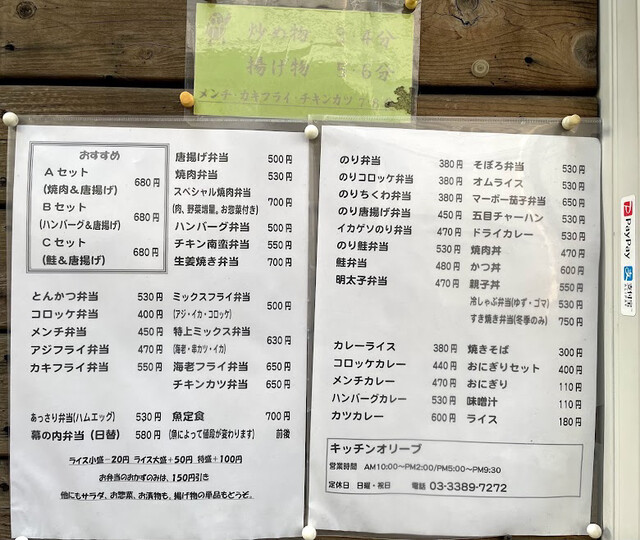 炒め物 3~4分
揚げ物 5~6分
メンチ・カキフライ チキンカツ
おすすめ
Aセット
(焼肉&唐揚げ) 680円
Bセット
(ハンバーグ&唐揚げ) 680円
Cセット
(鮭&唐揚げ) 680円
唐揚げ弁当 500円
焼肉弁当 530円
スペシャル焼肉弁当
(肉、野菜増量。お惣菜付き) 700円
ハンバーグ弁当 500円
チキン南蛮弁当 550円
生姜焼き弁当 700円
とんかつ弁当 530円
コロッケ弁当 400円
メンチ弁当 450円
アジフライ弁当 470円
カキフライ弁当 550円
ミックスフライ弁当
(アジ・イカ・コロッケ) 500円
特上ミックス弁当
(海老・串カツ・イカ) 630円
海老フライ弁当 650円
チキンカツ弁当 650円
あっさり弁当(ハムエッグ) 530円
幕の内弁当(日替) 580円
魚定食 700円
(魚によって値段が変わります) 前後
ライス小盛-20円 ライス大盛+50円 特盛+100円
お弁当のおかずのみは、150円引き
他にもサラダ、お惣菜、お漬物も。揚げ物の単品もどうぞ。
のり弁当 380円
のりコロッケ弁当 380円
のりちくわ弁当 380円
のり唐揚げ弁当 450円
イカゲソのり弁当 470円
のり鮭弁当 530円
鮭弁当 480円
明太子弁当 470円
そぼろ弁当 530円
オムライス 530円
マーボー茄子弁当 650円
五目チャーハン 530円
ドライカレー 530円
焼肉丼 550円
かつ丼 600円
親子丼 550円
冷しゃぶ弁当(ゆず・ゴマ) 530円
すき焼き弁当(冬季のみ) 750円
カレーライス 380円
コロッケカレー 440円
メンチカレー 470円
ハンバーグカレー 530円
カツカレー 600円
焼きそば 300円
おにぎりセット 400円
おにぎり 110円
味噌汁 110円
ライス 180円
キッチンオリーブ
営業時間 AM10:00~PM2:00/PM5:00~PM9:30
定休日 日曜・祝日 電話 03-3389-7272
PayPay